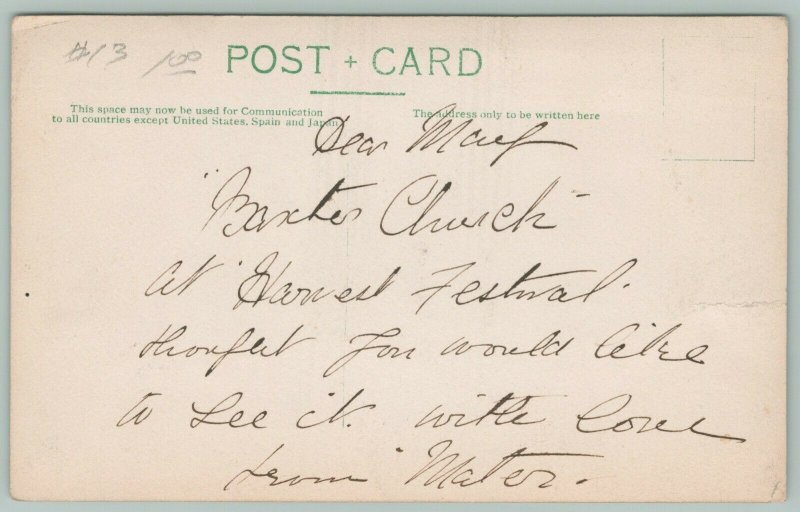 #13 1.00
POST + CARD
This space may now be used for Communication
to all countries except United States, Spain and Japan.
The address only to be written here
Dear Mary
"Baxter Church"
at "Harvest Festival"
thought you would like
to see it. with love
from "Mater.